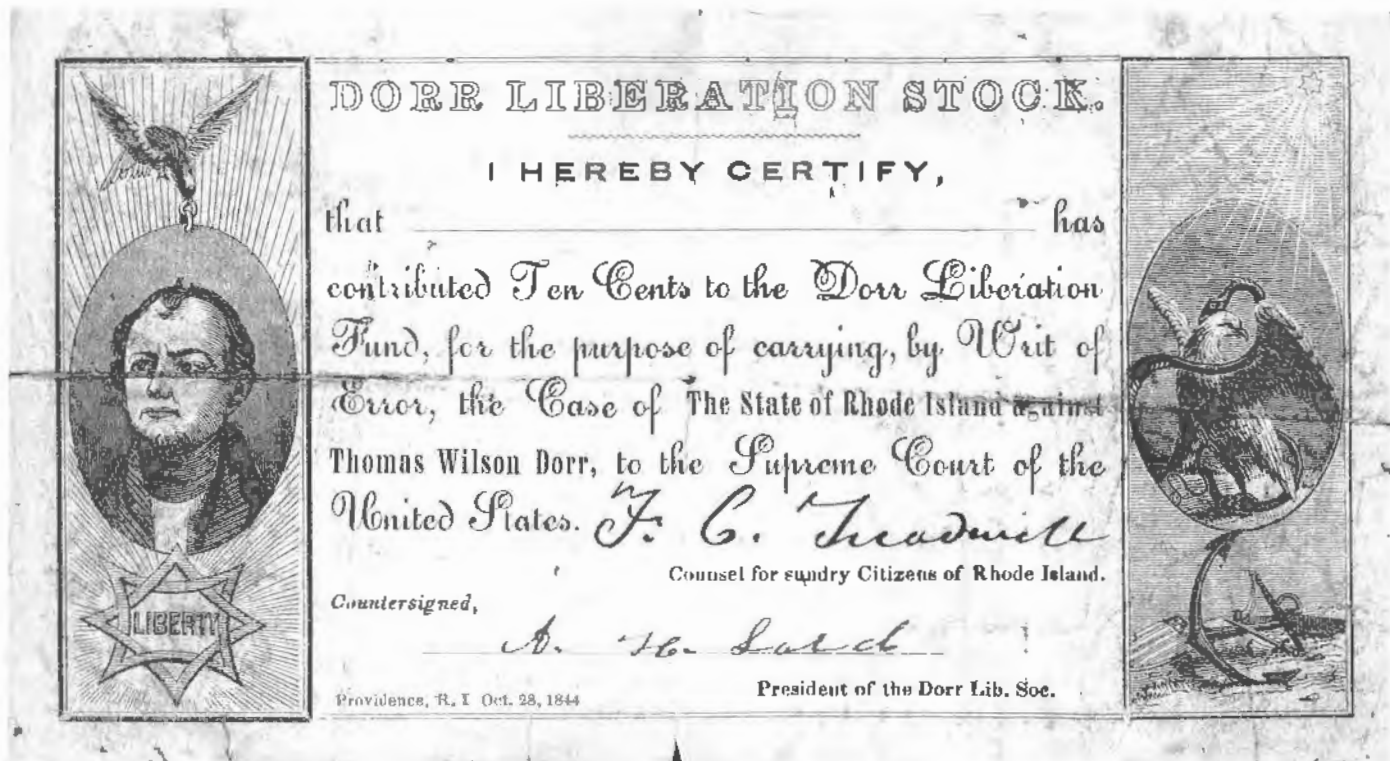 DORR LIBERATION STOCK.
I HEREBY CERTIFY,
that has
contributed Ten Cents to the Dorr Liberation
Fund, for the purpose of carrying, by Writ of
Error, the Case of The State of Rhode Island against
Thomas Wilson Dorr, to the Supreme Court of the
United States. F. C. Treadwell
Counsel for sundry Citizens of Rhode Island.
Countersigned,
A. H. Lord
President of the Dorr Lib. Soc.
Providence, R. I Oct. 28, 1844
LIBERTY